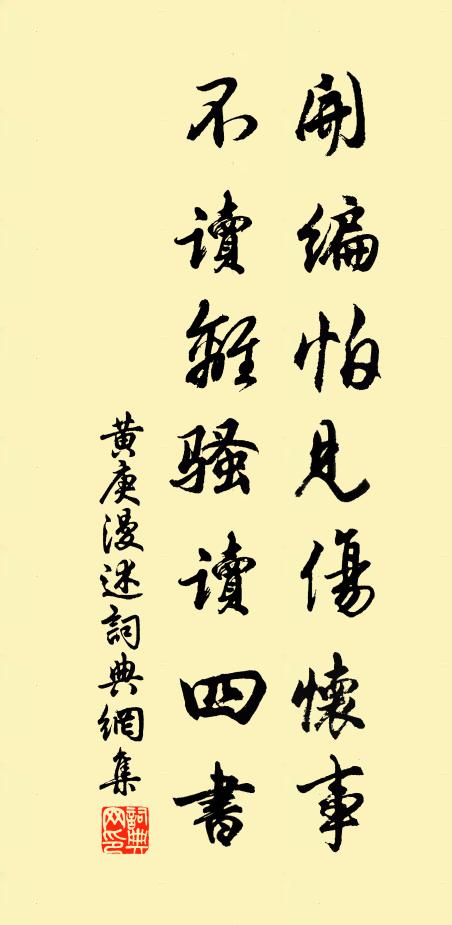 開編怕見傷懷事
不讀離騷讀四書
黃庚漫述詞典網集
詞典網印